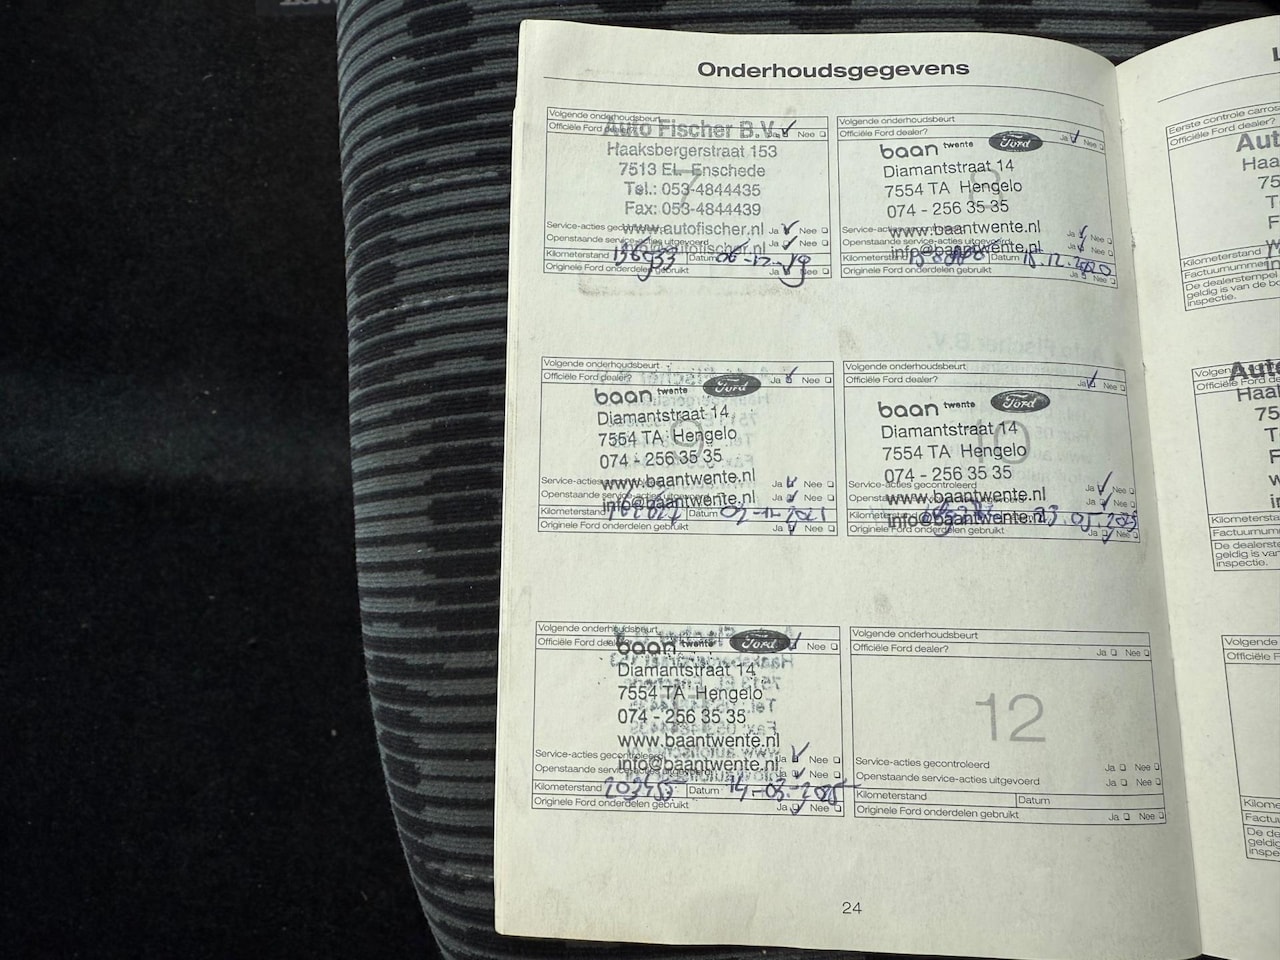 Onderhoudsgegevens
Volgende onderhoudsbeurt
Officiële Ford dealer? Ja Nee
Auto Fischer B.V.
Haaksbergerstraat 153
7513 EL Enschede
Tel.: 053-4844435
Fax: 053-4844439
www.autofischer.nl
Service-acties gecontroleerd Ja Nee
Openstaande service-acties uitgevoerd
Kilometerstand Datum 06-12-19
Originele Ford onderdelen gebruikt Nee
Volgende onderhoudsbeurt
Officiële Ford dealer? Ja Nee
baan twente Ford
Diamantstraat 14
7554 TA Hengelo
074 - 256 35 35
www.baantwente.nl
info@baantwente.nl
Service-acties Ja Nee
Openstaande service-acties uitgevoerd Ja Nee
Kilometerstand Datum 15.12.2020
Originele Ford onderdelen gebruikt Ja Nee
Volgende onderhoudsbeurt
Officiële Ford dealer? Ja Nee
9
baan twente Ford
Diamantstraat 14
7554 TA Hengelo
074 - 256 35 35
www.baantwente.nl
info@baantwente.nl
Service-acties Ja Nee
Openstaande service-acties uitgevoerd Ja Nee
Kilometerstand Datum
Originele Ford onderdelen gebruikt Ja Nee
Volgende onderhoudsbeurt
Officiële Ford dealer? Ja Nee
10
baan twente Ford
Diamantstraat 14
7554 TA Hengelo
074 - 256 35 35
www.baantwente.nl
info@baantwente.nl
Service-acties gecontroleerd Ja Nee
Kilometerstand
Originele Ford onderdelen gebruikt Ja Nee
Volgende onderhoudsbeurt
Officiële Ford Nee
baan twente Ford
Diamantstraat 14
7554 TA Hengelo
074 - 256 35 35
www.baantwente.nl
info@baantwente.nl
Service-acties gecontroleerd Ja Nee
Openstaande Ja Nee
Kilometerstand 203453 Datum 14-03-2025
Originele Ford onderdelen gebruikt Ja Nee
Volgende onderhoudsbeurt
Officiële Ford dealer? Ja Nee
12
Service-acties gecontroleerd Ja Nee
Openstaande service-acties uitgevoerd Ja Nee
Kilometerstand Datum
Originele Ford onderdelen gebruikt Ja Nee
24
Eerste controle
Officiële Ford dealer?
Kilometerstand
Factuurnummer
De dealerstempel
geldig is van de
inspectie.
Kilometerstand
inspectie.